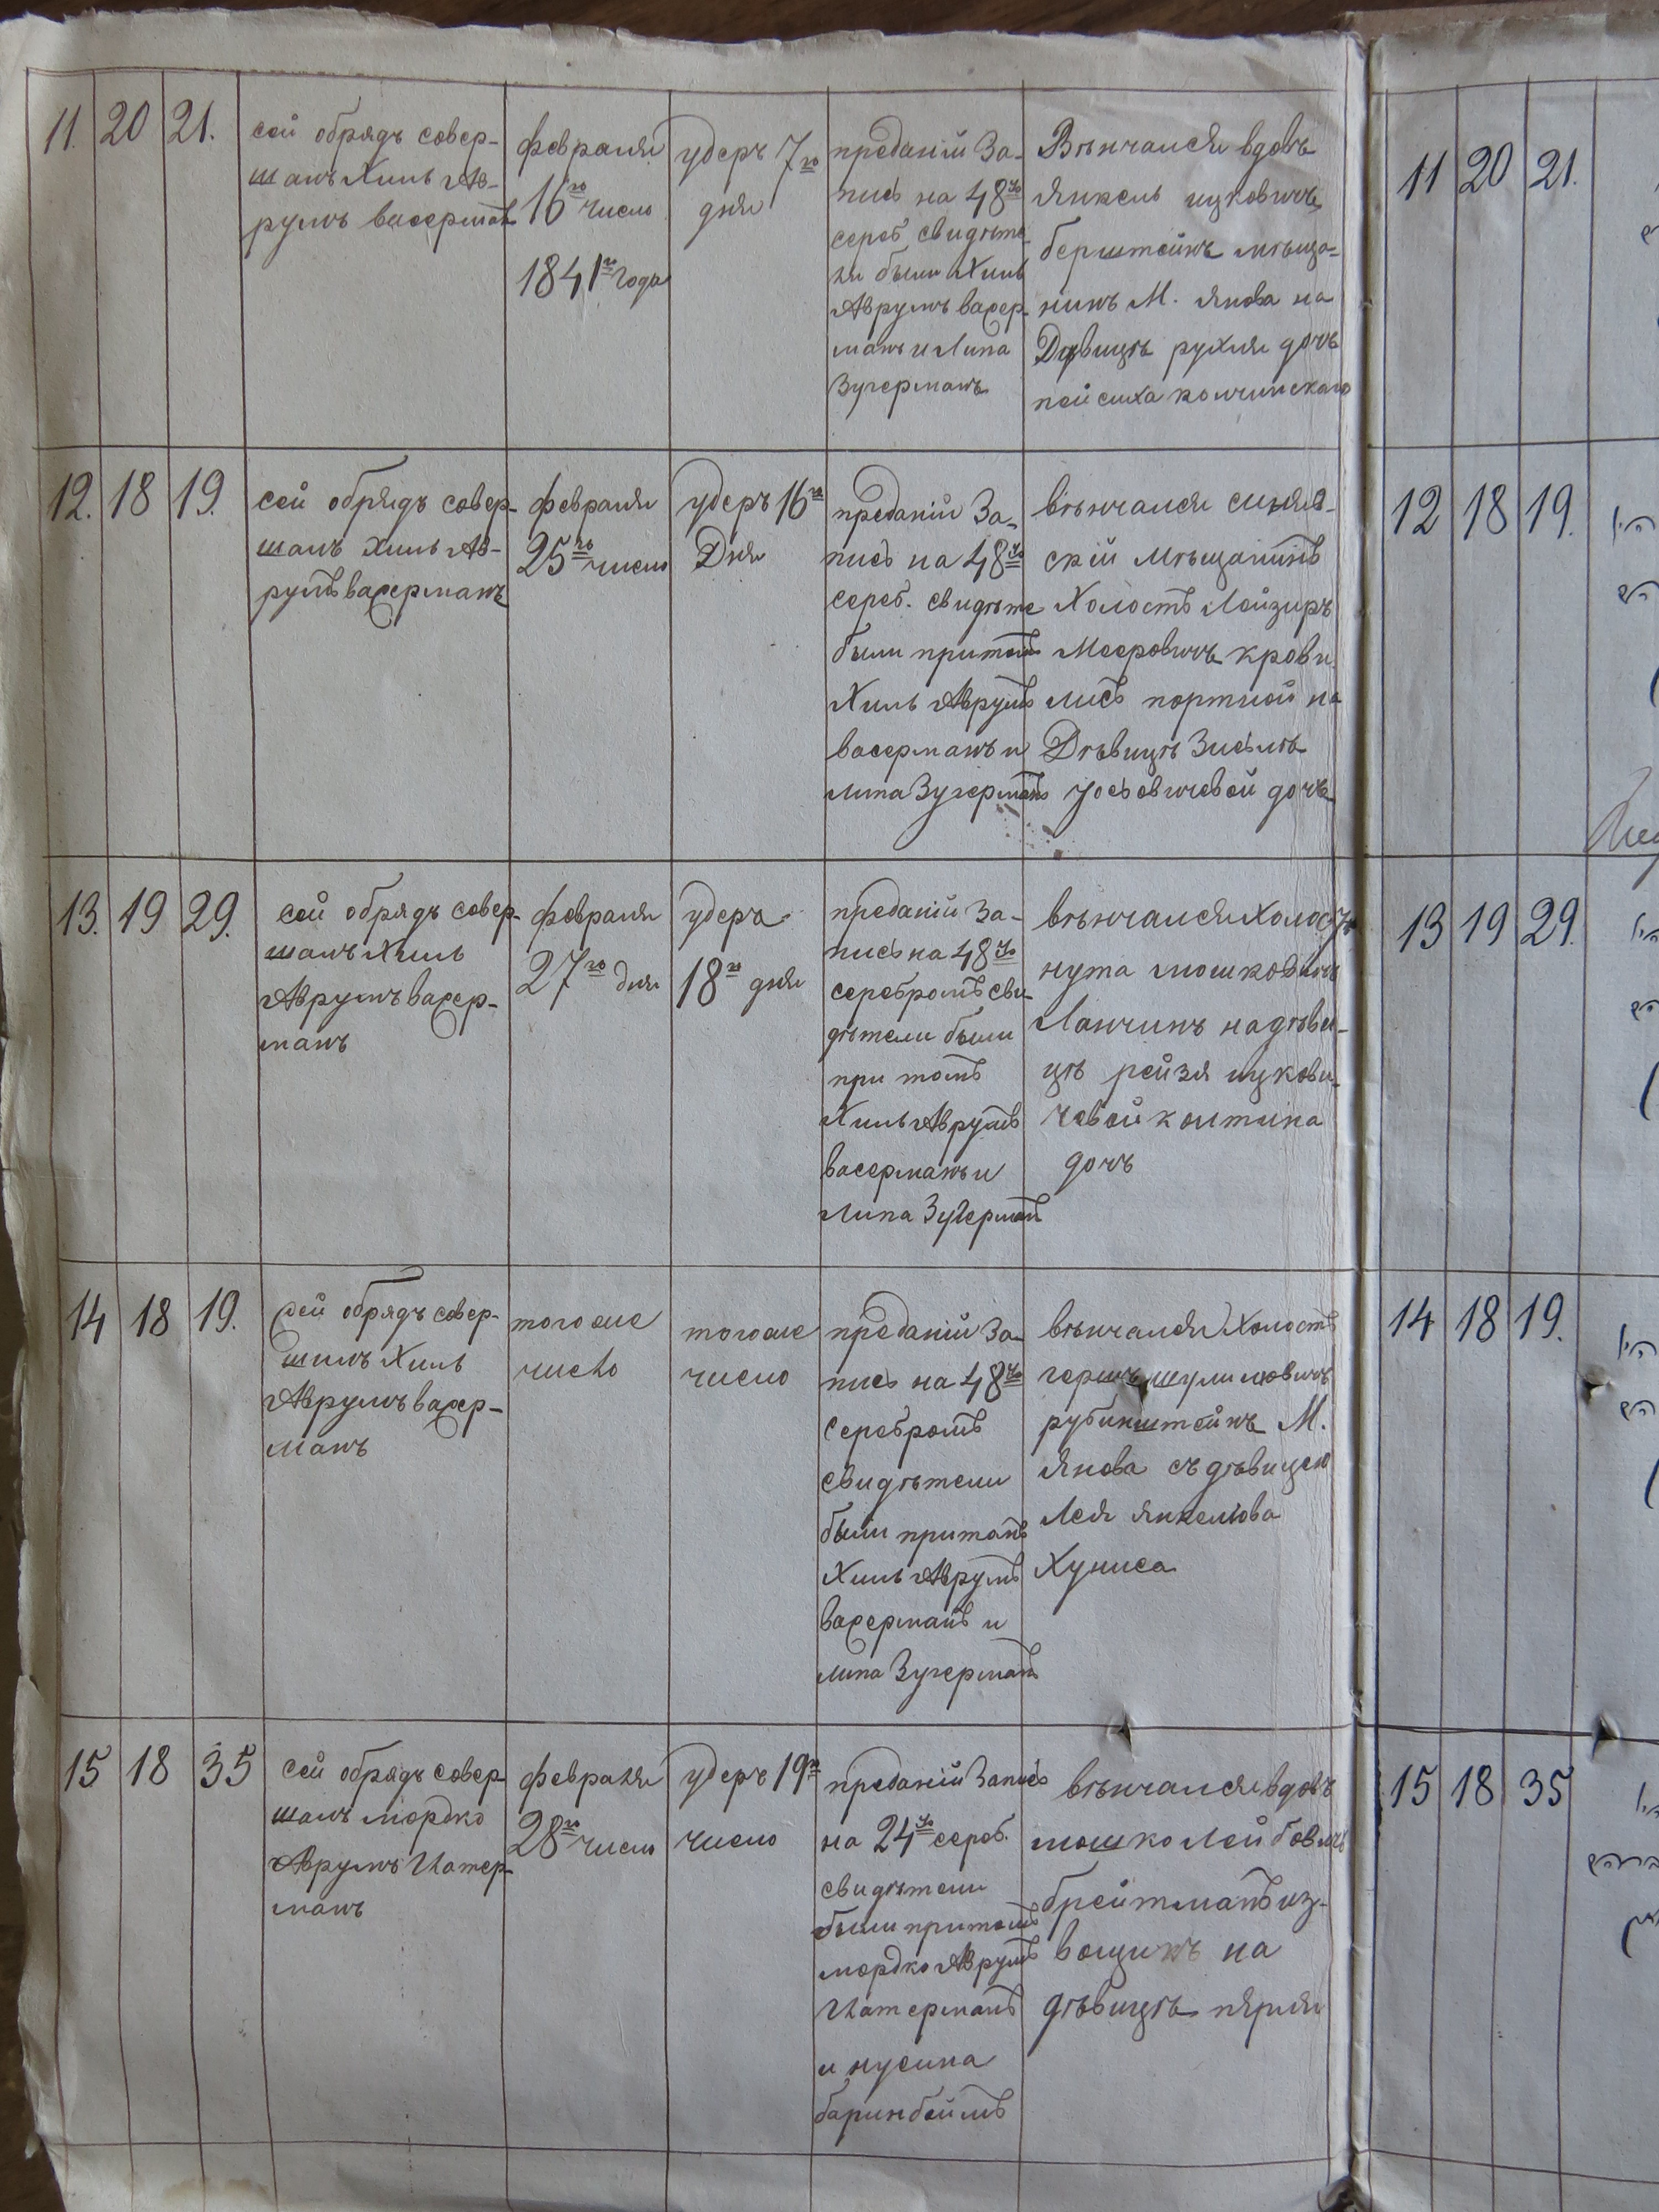 11. 20 21.
сей обрядъ совер-
шалъ Хиль Ав-
румъ васерманъ
февраля
16го число
1841го года
удеръ 7го
дня
преданій За-
пись на 48чо
сереб свидѣте
ли были Хиль
Аврумъ васер-
манъ и Липа
Зугерманъ
Вѣнчался вдовъ
Янкель ицковичъ
берштейнъ мѣща-
нинъ М. Янова на
Дѣвицѣ рухля дочь
пейсиха
12. 18 19.
сей обрядъ совер-
шалъ Хиль Ав-
румъ васерманъ
февраля
25го число
удеръ 16го
Дня
преданій За-
пись на 48чо
сереб. свидѣте
были притомъ
Хиль Аврумъ
васерманъ и
липа Зугерманъ
вѣнчался синяв-
скій мѣщанинъ
Холостъ Лейзиръ
Мееровичъ
портной на
Дѣвицѣ Зисьлѣ
Йосьовичевой дочь
13. 19 29.
сей обрядъ совер-
шалъ Хиль
Аврумъ васер-
манъ
февраля
27го дня
удера
18го дня
преданій За-
пись на 48чо
серебромъ сви-
дѣтели были
при томъ
Хиль Аврумъ
васерманъ и
Липа Зугерманъ
вѣнчался Холостъ
нута мошковичъ
Ланчинъ на дѣви-
цѣ рейзя ицкови-
чевой колтина
дочь
14 18 19.
сей обрядъ совер-
шилъ Хиль
Аврумъ васер-
манъ
того же
число
того же
число
преданій За-
пись на 48чо
серебромъ
свидѣтели
были притомъ
Хиль Аврумъ
васерманъ и
липа Зугерманъ
вѣнчался Холостъ
гершъ шулимовичъ
рубинштейнъ М.
Янова съ дѣвицею
Лея Янкелюва
Хуниса
15 18 35
сей обрядъ совер-
шалъ мордко
Аврумъ Шатер-
манъ
февраля
28го число
удеръ 19го
число
преданій Запись
на 24чо сереб.
свидѣтели
были притомъ
мордко Аврумъ
Шатерманъ
и нусина
баринбеймъ
вѣнчался вдовъ
мошко Лейбовичъ
брейтманъ из-
вощикъ на
дѣвицѣ пярля
11 20 21.
12 18 19.
13 19 29.
14 18 19.
15 18 35